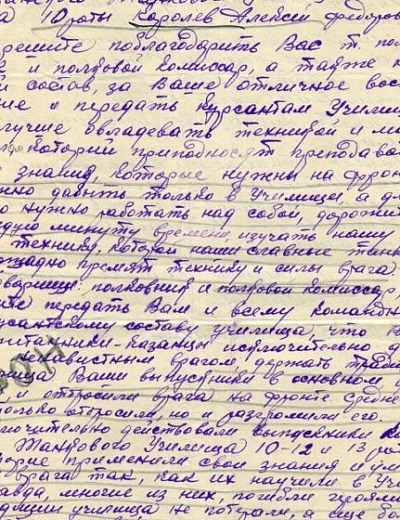 10 роты Королев Алексей Федоров
решите поблагодарить Вас т. пол
к и полковой комиссар, а также к
й состав, за Ваше отличное вос
ние и передать курсантам Училищ
лучше овладевать техникой и
которий преподносят преподава
знания, которые нужны на фрон
жно давить только в Училище, а
о нужно работать над собой, дорожит
ждую минуту времени, изучать нашу
технику, которой наши славные танки
ощадно громят технику и силы врага
товарищи: полковник и полковой комиссар,
ите передать Вам и всему командн
рсантскому составу училища, что В
спитанники-казанцы исключительно д
ненавистным врагом, держать
лища. Ваши выпускники в основном
и отбросили врага на фронте средне
олько отбросили, но и разгромили его.
лючительно действовали выпускники
Танкового Училища 10-12 и 13 ро
орые применили свои знания и ум
врага так, как их научили в Учи
авда, многие из них, погибли героями
адиции училища не потеряли, а еще бол